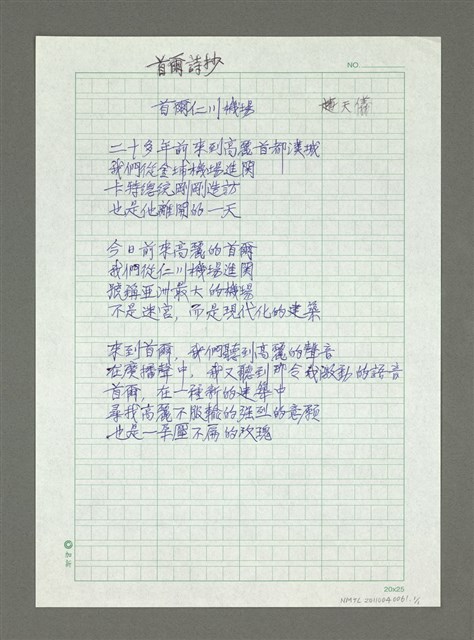 首爾詩抄
NO.
首爾仁川機場 趙天儀
二十多年前來到高麗首都漢城
我們從金埔機場進関
卡特總統剛剛造訪
也是他離開的一天
今日前來高麗的首爾
我們從仁川機場進関
號稱亞洲最大的機場
不是迷宮，而是現代化的建築
來到首爾，我們聽到高麗的聲音
在廣播聲中，我又聽到那令我激動的語音
首爾，在一種新的建築中
尋找高麗不服輸的強烈的意願
也是一朵壓不扁的玫瑰
20x25
NMTL 20110040061-1/1